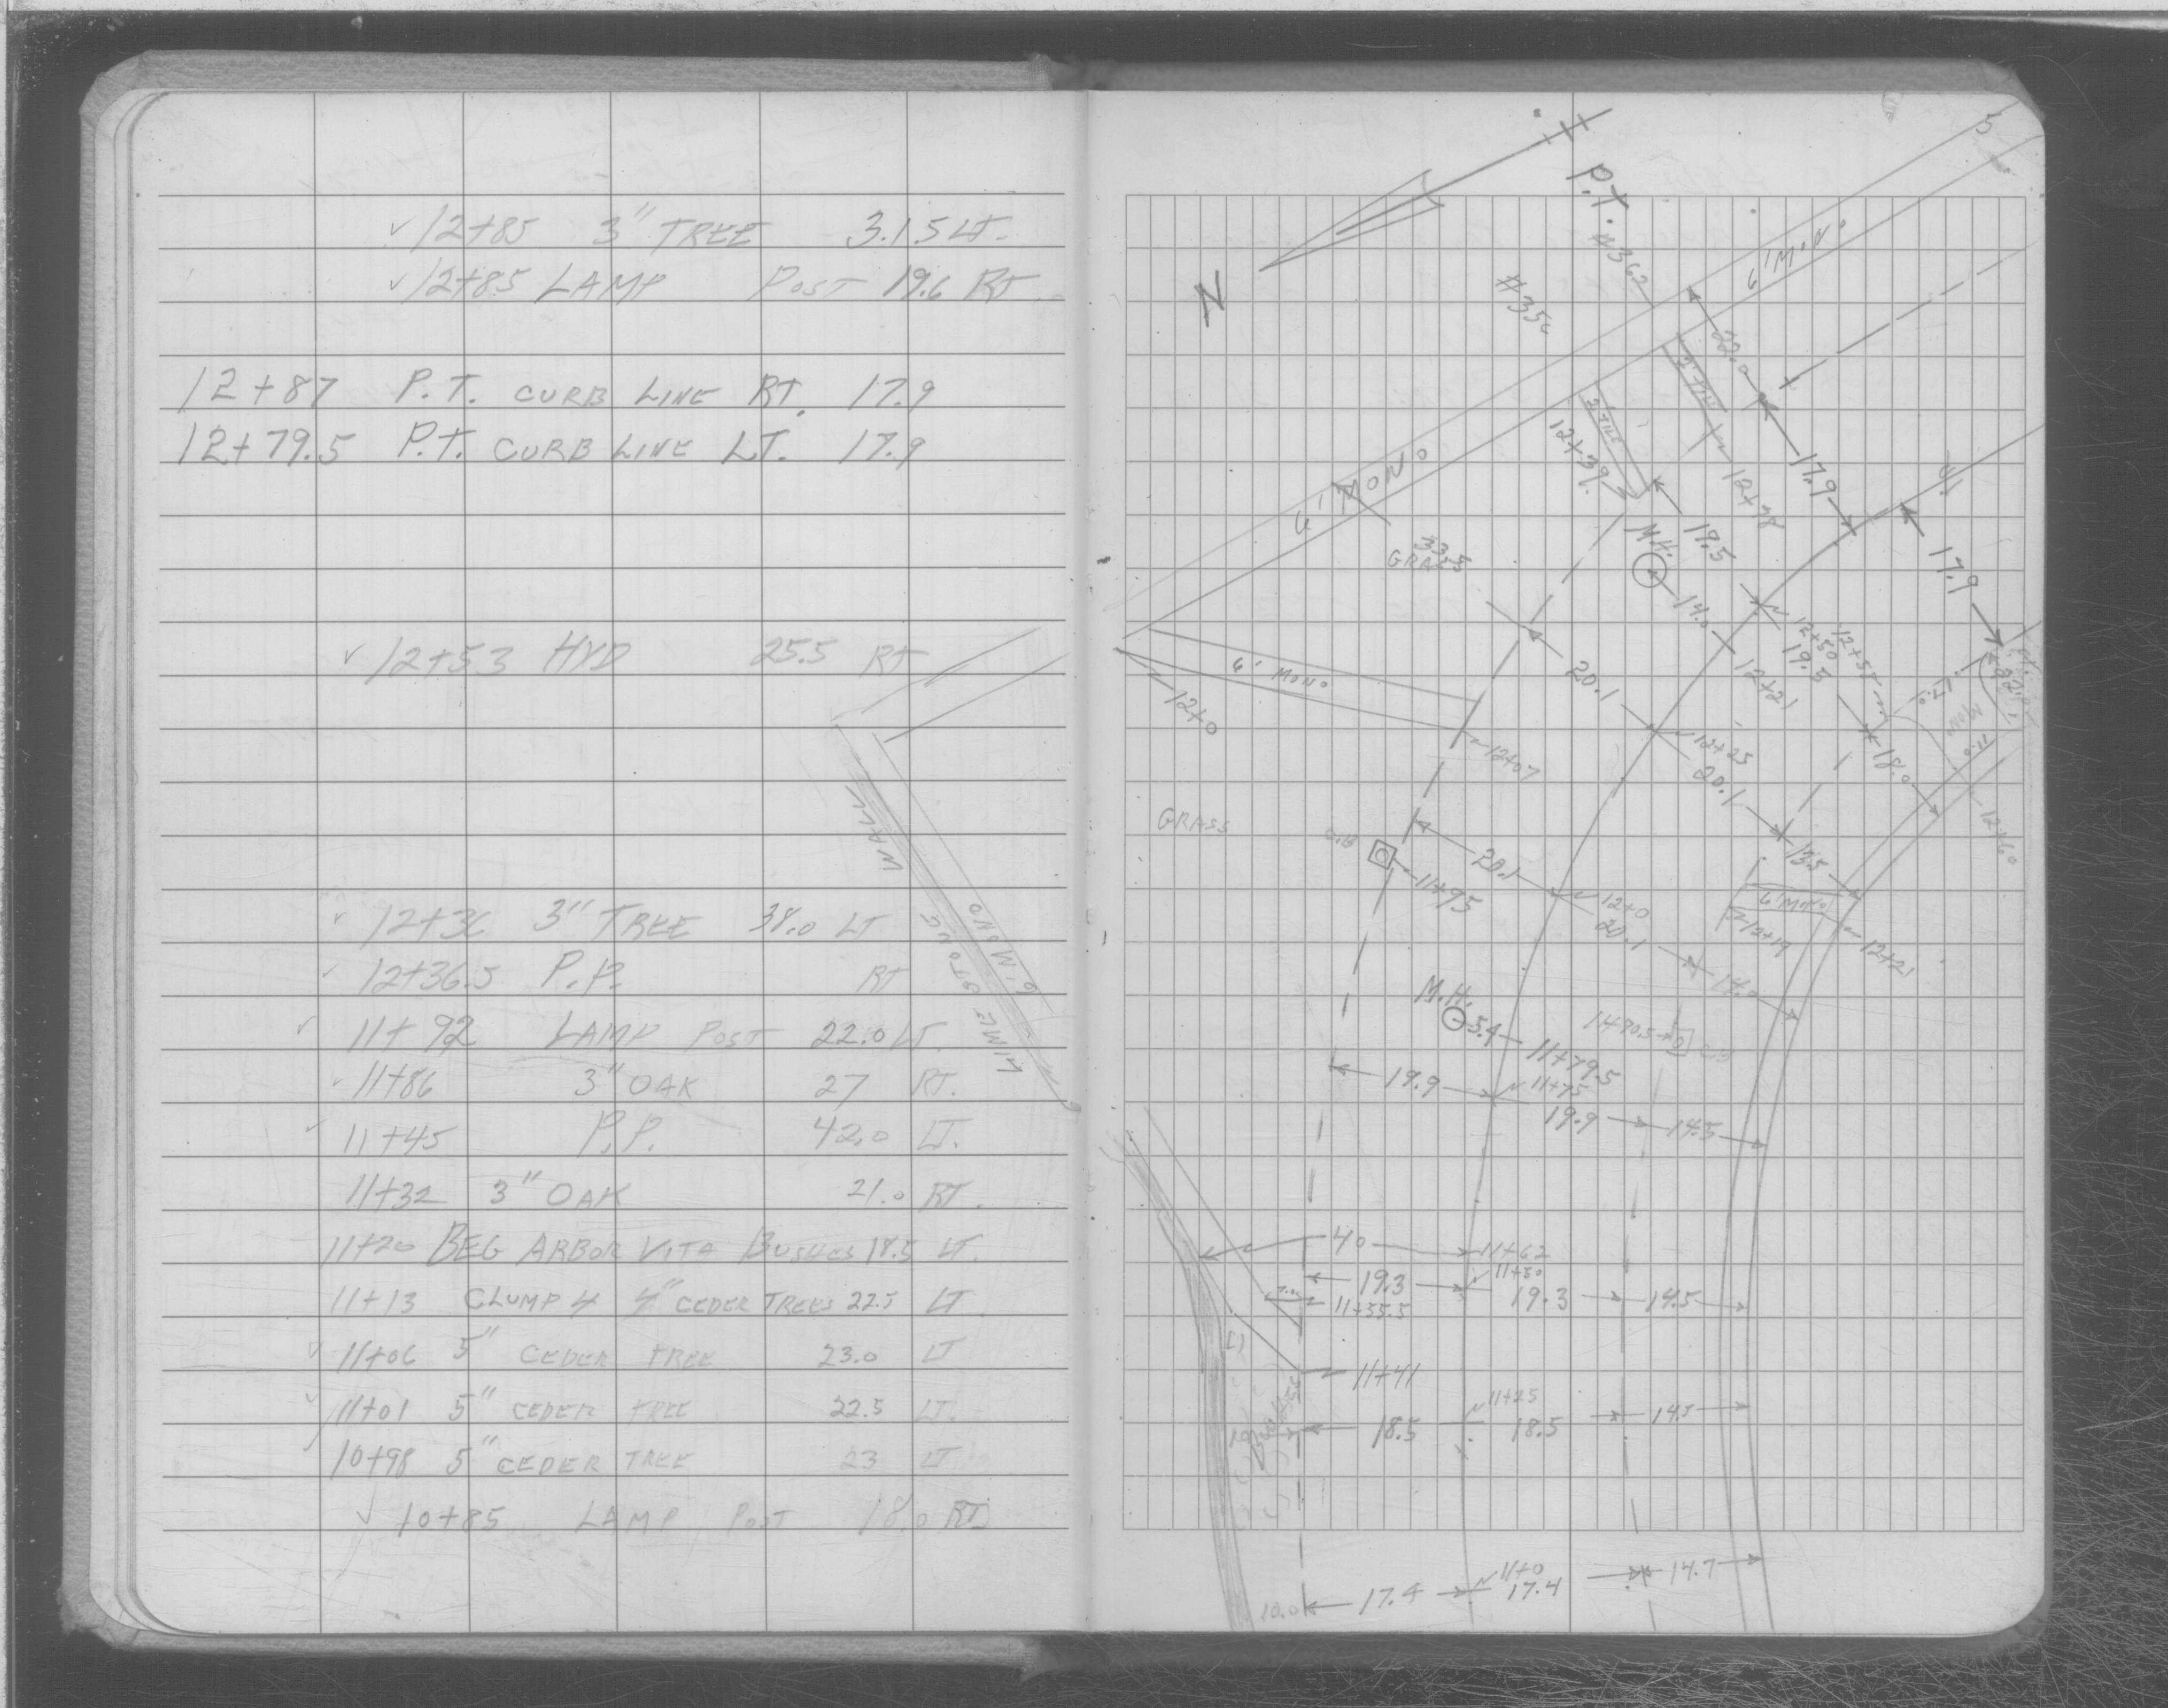 12+85 3" TREE 3.15 LT.
12+85 LAMP POST 19.6 RT
12+87 P.T. CURB LINE RT. 17.9
12+79.5 P.T. CURB LINE LT. 17.9
12+53 HYD 25.5 RT
12+36 3" TREE 38.0 LT
12+36.5 P.P. RT
11+92 LAMP POST 22.0 LT.
11+86 3" OAK 27 RT.
11+45 P.P. 42.0 LT.
11+32 3" OAK 21.0 RT.
11+20 BEG ARBOR VITA BUSHES 18.5 LT.
11+13 CLUMP 4 4" CEDER TREES 22.5 LT
11+06 5" CEDER TREE 23.0 LT
11+01 5" CEDER TREE 22.5 LT.
10+98 5" CEDER TREE 23 LT
10+85 LAMP POST 18.0 RT.
LIME STONE WALL
6' MONO
5
P.T.
N
#362
6' MONO
22.0
17.9
12+39
6' MONO
33.5
GRASS
M.H.
19.5
14.0
12+50
19.5
12+21
17.9
6' MONO
12+0
12+07
20.1
12+25
20.1
18.0
GRASS
11+95
20.1
12+0
20.1
14.0
13.5
6' MONO
12+19
12+21
M.H.
5.4
11+79.5
19.9
11+75
19.9
14.5
40
11+62
19.3
11+50
19.3
14.5
11+55.5
11+41
18.5
11+25
18.5
14.5
10.0
17.4
11+0
17.4
14.7